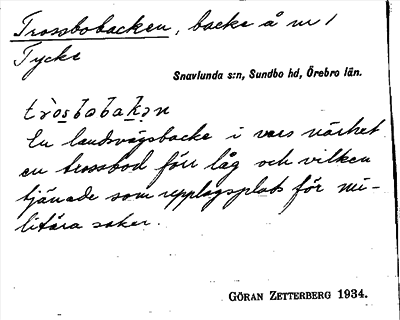 Trossbobacken, backe å nr 1
Tycke
Snavlunda s:n, Sundbo hd, Örebro län.
tròsbobakən
En landsvägsbacke i vars närhet
en trossbod förr låg och vilken
tjänade som upplagsplats för mi-
litära saker.
GÖRAN ZETTERBERG 1934.